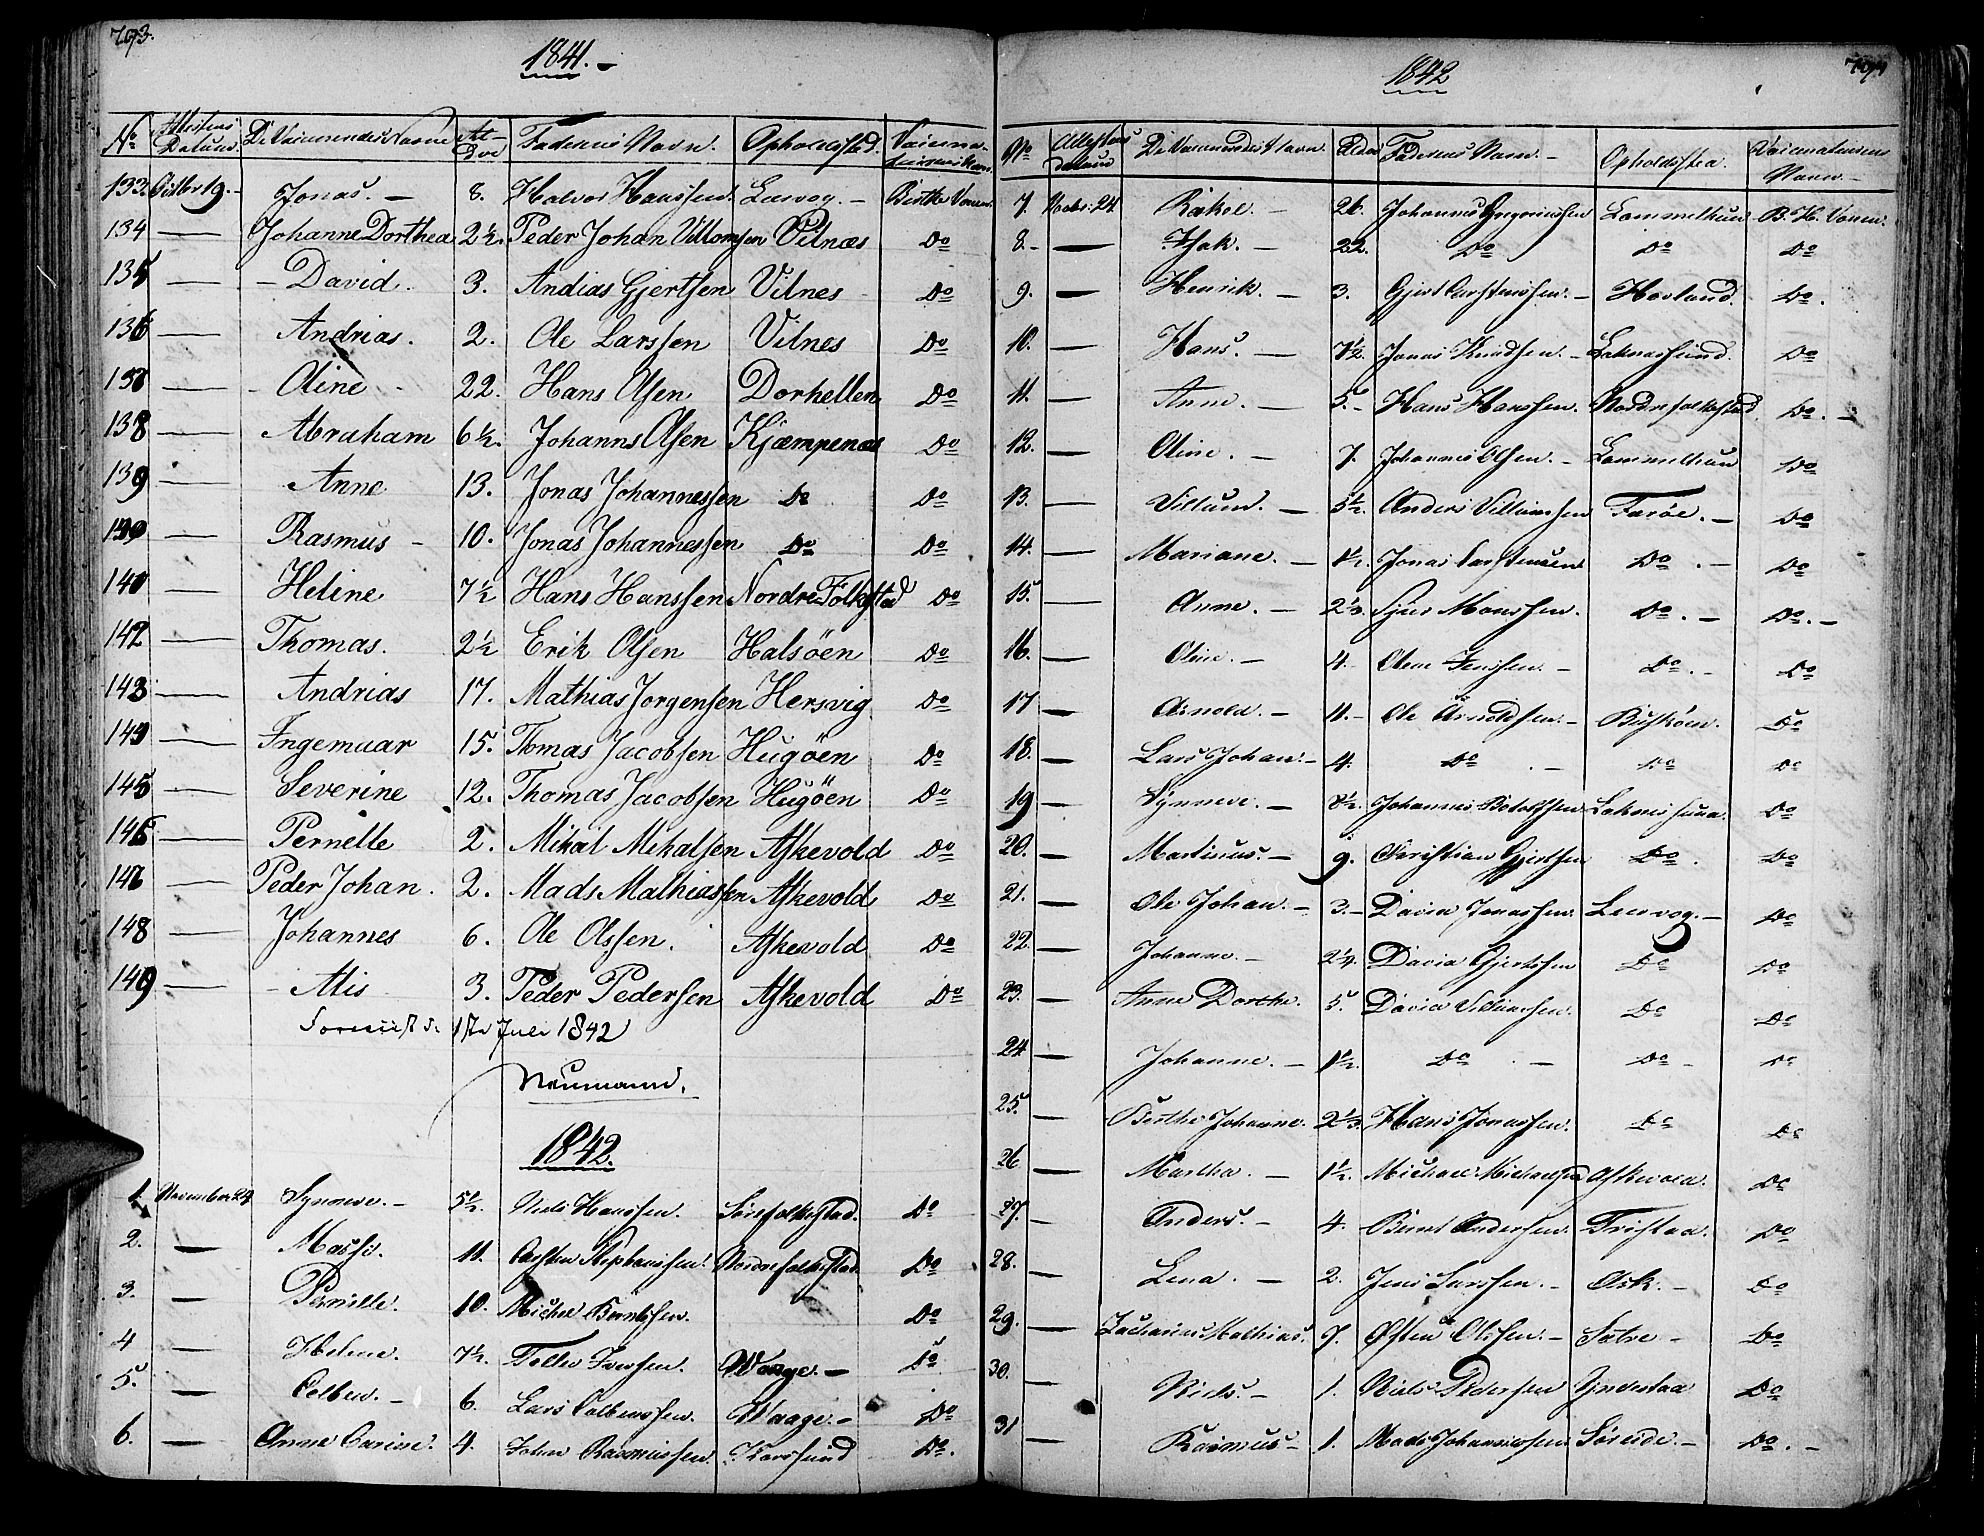 793.
1841.
No Attestens Datum. De Vaccineredes Navne Al- der Faderens Navn. Opholdssted. Vaccina- teurens Navn.
133 Octbr 19. Jonas. 8. Halvor Hanssen. Leervog. Birthe Vonen
134 — Johanne Dorthea 2½. Peder Johan Villomsen Vilnæs Do
135 — David. 3. Andias Gjertsen Vilnes Do
136 — Andrias. 2. Ole Larssen Vilnes Do
137 — Oline 22. Hans Olsen Dorhellen Do
138 — Abraham 6½. Johanns Olsen Kjæmpenæs Do
139 — Anne 13. Jonas Johannessen Do Do
140 — Rasmus 10. Jonas Johannessen Do Do
141 — Heline 7½ Hans Hanssen Nordre Folkestad Do
142 — Thomas. 2½ Erik Olsen Halsöen Do
143 — Andrias 17. Mathias Jorgensen Hersvig Do
144 — Ingemuar 15. Tomas Jacobsen Hugöen Do
145 — Severine 12. Thomas Jacobsen Hugöen Do
146 — Pernelle 2. Mikal Mikalsen Askevold Do
147 — Peder Johan. 2. Mads Mathiassen Askevold Do
148 — Johannes 6. Ole Olssen. Askevold Do
149 — Alis 3. Peder Pedersen Askevold Do
1ste Juli 1842
Neumann.
1842.
1. November 24 Synneve. 5½. Niels Hanssen. Sörefolkestad. Do
2. — Massi. 11. Carsten Stephanssen. Nordrefolkestad. Do
3. — Pernille. 10. Michel Berntssen. Do
4 — Helene. 7½. Tollev Iverssen. Waage. Do
5. — Colben. 6. Lars Colbenssen. Waage. Do
6. — Anne Carine. 4. Johan Rasmussen. Karssund Do.
794
1842
No Attestens Datum De Vaccineredes Navn. Alder Faderens Navn. Opholdssted. Vaccinateurens Navn.
7. Novbr. 24. Rakel. 26. Johannes Gregoriussen Lammethun B. H. Vonen.
8. — Isak. 22. Do Do Do
9. — Henrik. 3. Gjert Carstenssen. Hovland. Do.
10. — Hans. 7½. Jonas Knudsen. Laknessund. Do
11. — Anne. 5. Hans Hanssen. Nordrefolkestad Do.
12. — Oline. 7. Johannes Olsen. Lammethun Do
13. — Villum. 5½. Anders Villumssen Faröe. Do
14. — Mariane. 1½. Jonas Carstenssen Do. Do
15. — Anne. 2⅓. Sjur Monssen. Do. Do.
16. — Oline. 4. Olene Jenssen. Do. Do
17 — Arnold. 11. Ole Arnoldssen. Busköen. Do
18. — Lars Johan. 4. Do Do Do
19 — Synneve. 8½. Johannes Botolfssen Laknessund. Do
20. — Martinus. 9. Christian Gjertsen Do. Do
21. — Ole Johan. 3. David Jonassen. Leervog. Do
22. — Johanne. 2¼. David Gjertssen Do Do
23. — Anne Dorthe. 5. David Villumssen. Do Do
24. — Johanne. 1½. Do Do Do
25. — Berthe Johanne. 2⅓. Hans Jonassen. Do Do
26. — Martha. 1½. Michael Michaelsen Askevold. Do
27. — Anders. 4. Bernt Andersen. Tristad. Do
28. — Lena. 2. Jens Larssen. Ask. Do
29. — Zacharias Mathias. 7. Östen Olssen. Sætre Do
30. — Niels. 1. Niels Pedersen Yndestad Do
31 — Rasmus 1. Mads Johannessen Söreide. Do.